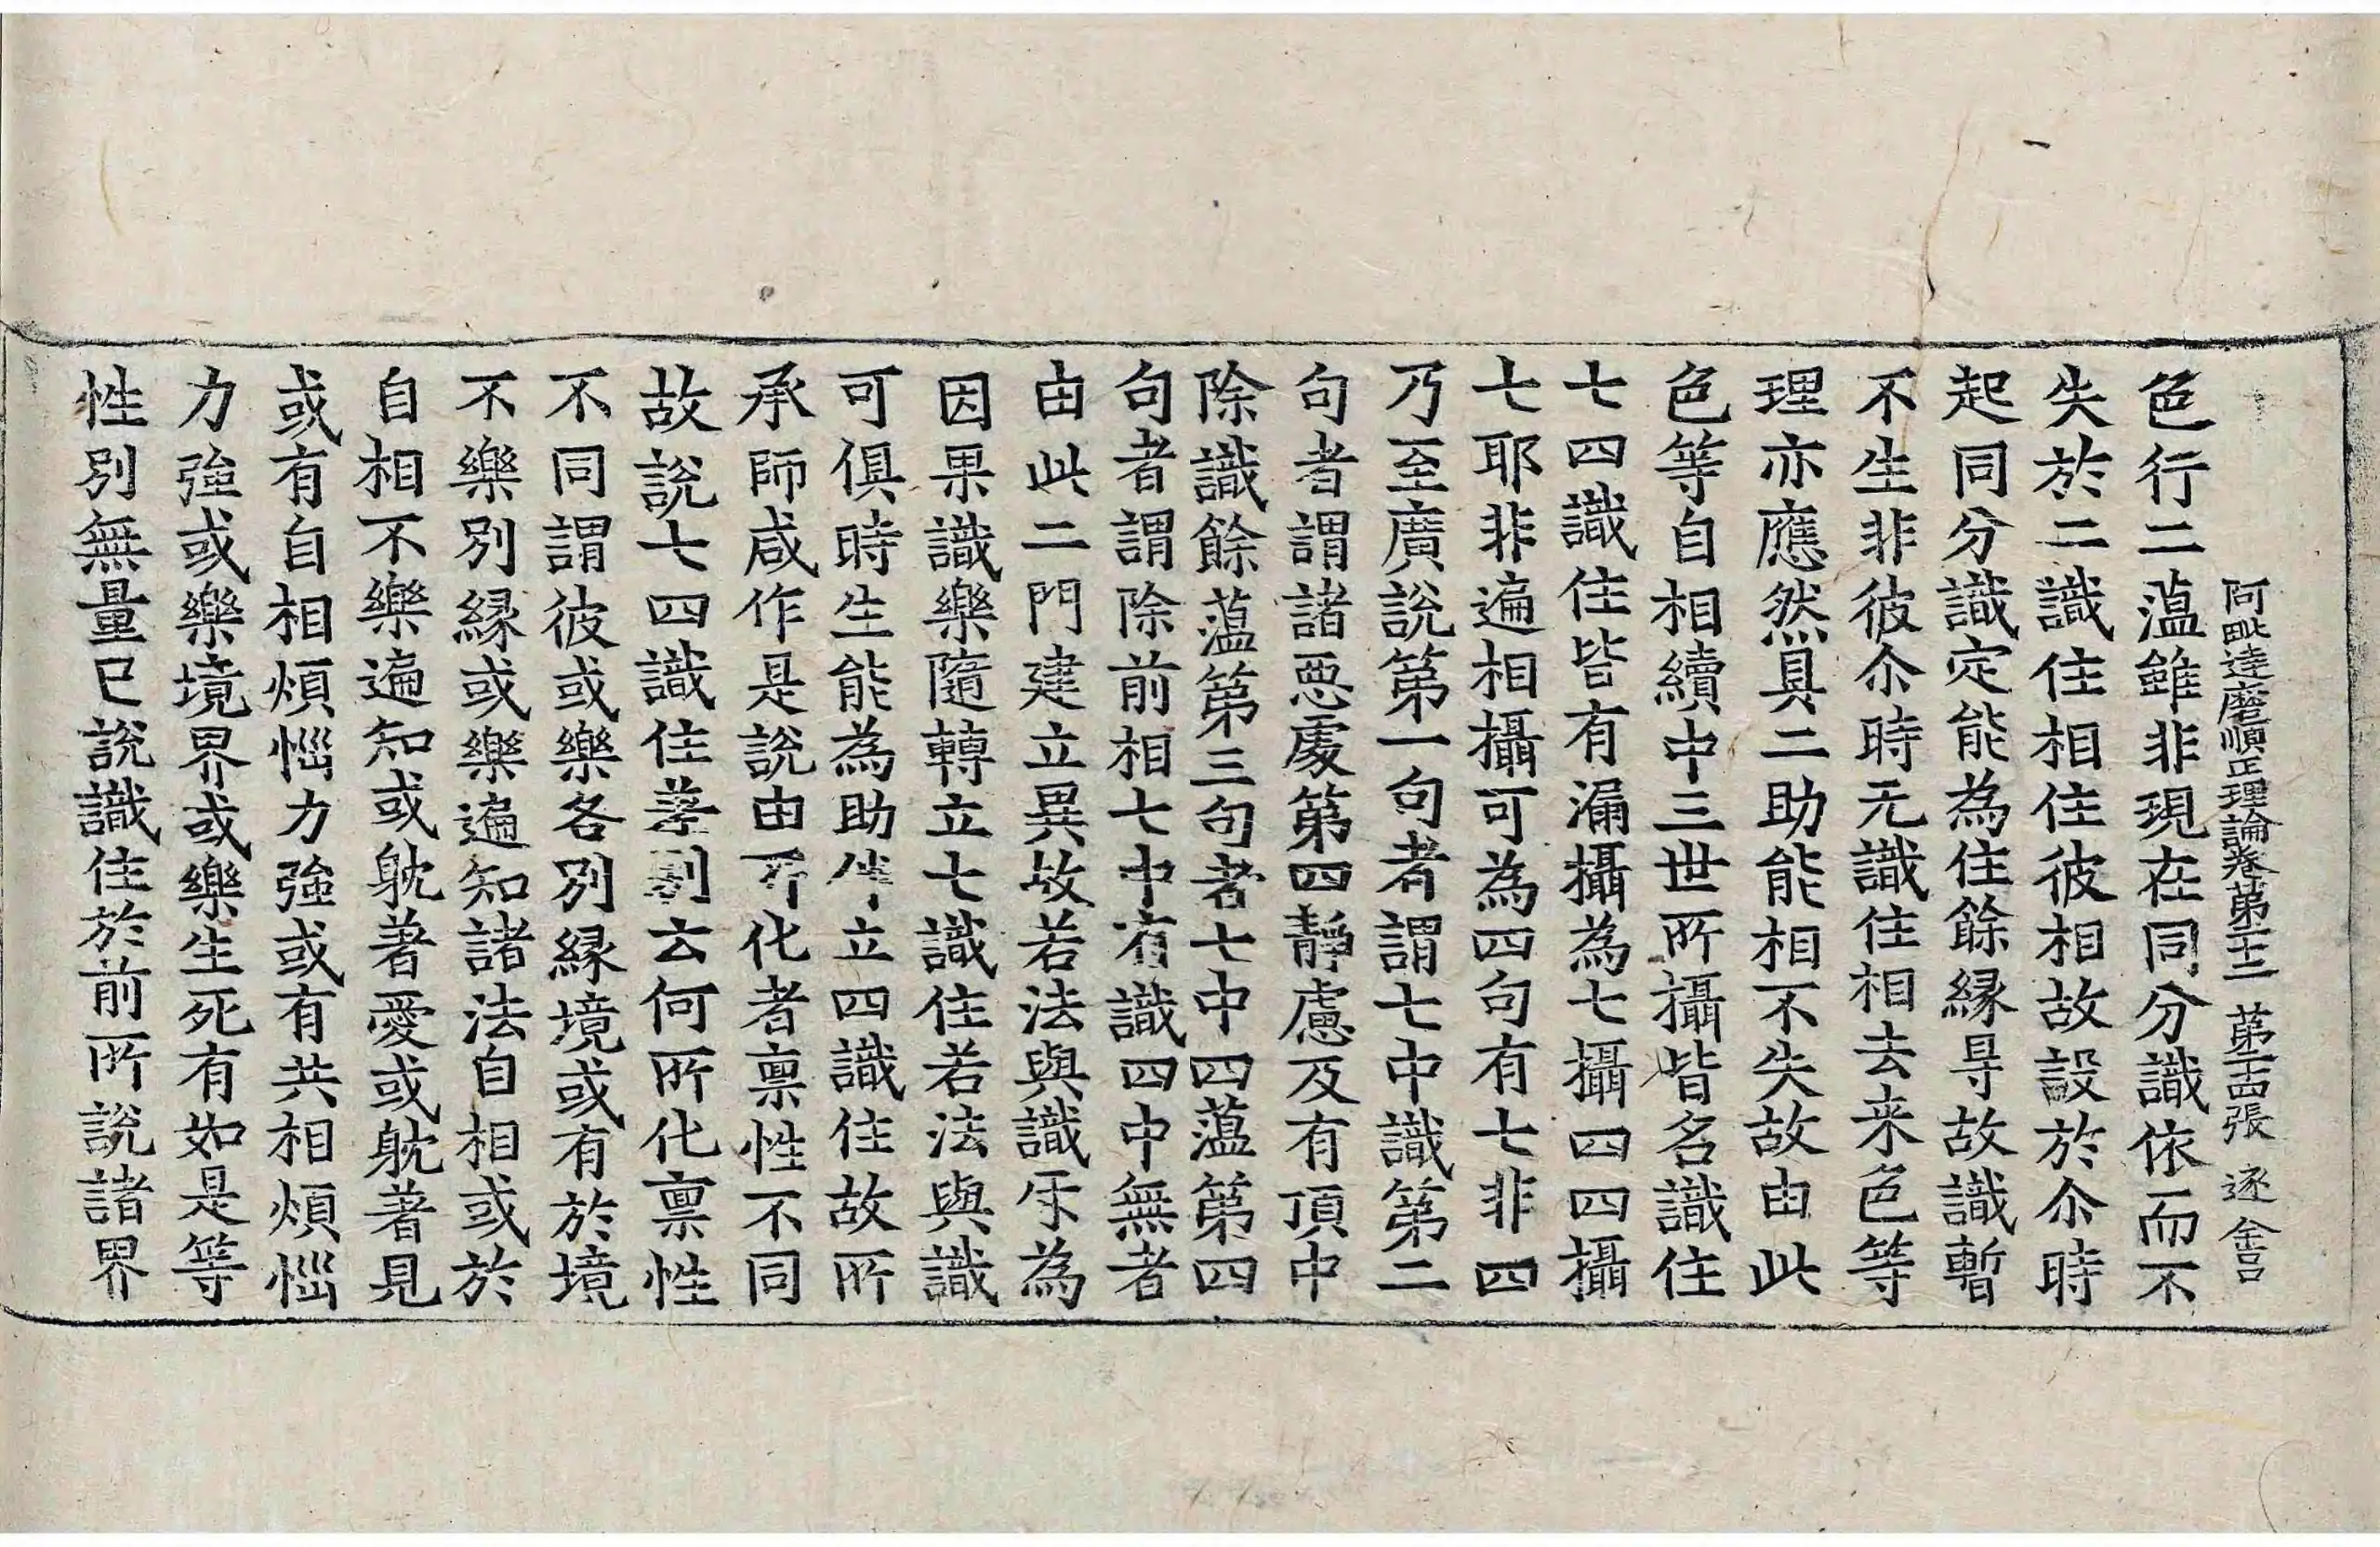 阿毗達磨順正理論卷第二十二 第二十四張 逐 含
色行二蘊雖非現在同分識依而不
失於二識住相住彼相故設於尒時
起同分識定能為住餘緣㝵故識暫
不生非彼尒時无識住相去来色等
理亦應然具二助能相不失故由此
色等自相續中三世所攝皆名識住
七四識住皆有漏攝為七攝四四攝
七耶非遍相攝可為四句有七非四
乃至廣說第一句者謂七中識第二
句者謂諸惡處第四靜慮及有頂中
除識餘蘊第三句者七中四蘊第四
句者謂除前相七中有識四中無者
由此二門建立異故若法與識㸦為
因果識樂隨轉立七識住若法與識
可俱時生能為助伴立四識住故所
承師咸作是說由所化者稟性不同
故說七四識住差別云何所化稟性
不同謂彼或樂各別緣境或有於境
不樂別緣或樂遍知諸法自相或於
自相不樂遍知或躭著愛或躭著見
或有自相煩惱力強或有共相煩惱
力強或樂境界或樂生死有如是等
性別無量已說識住於前所說諸界